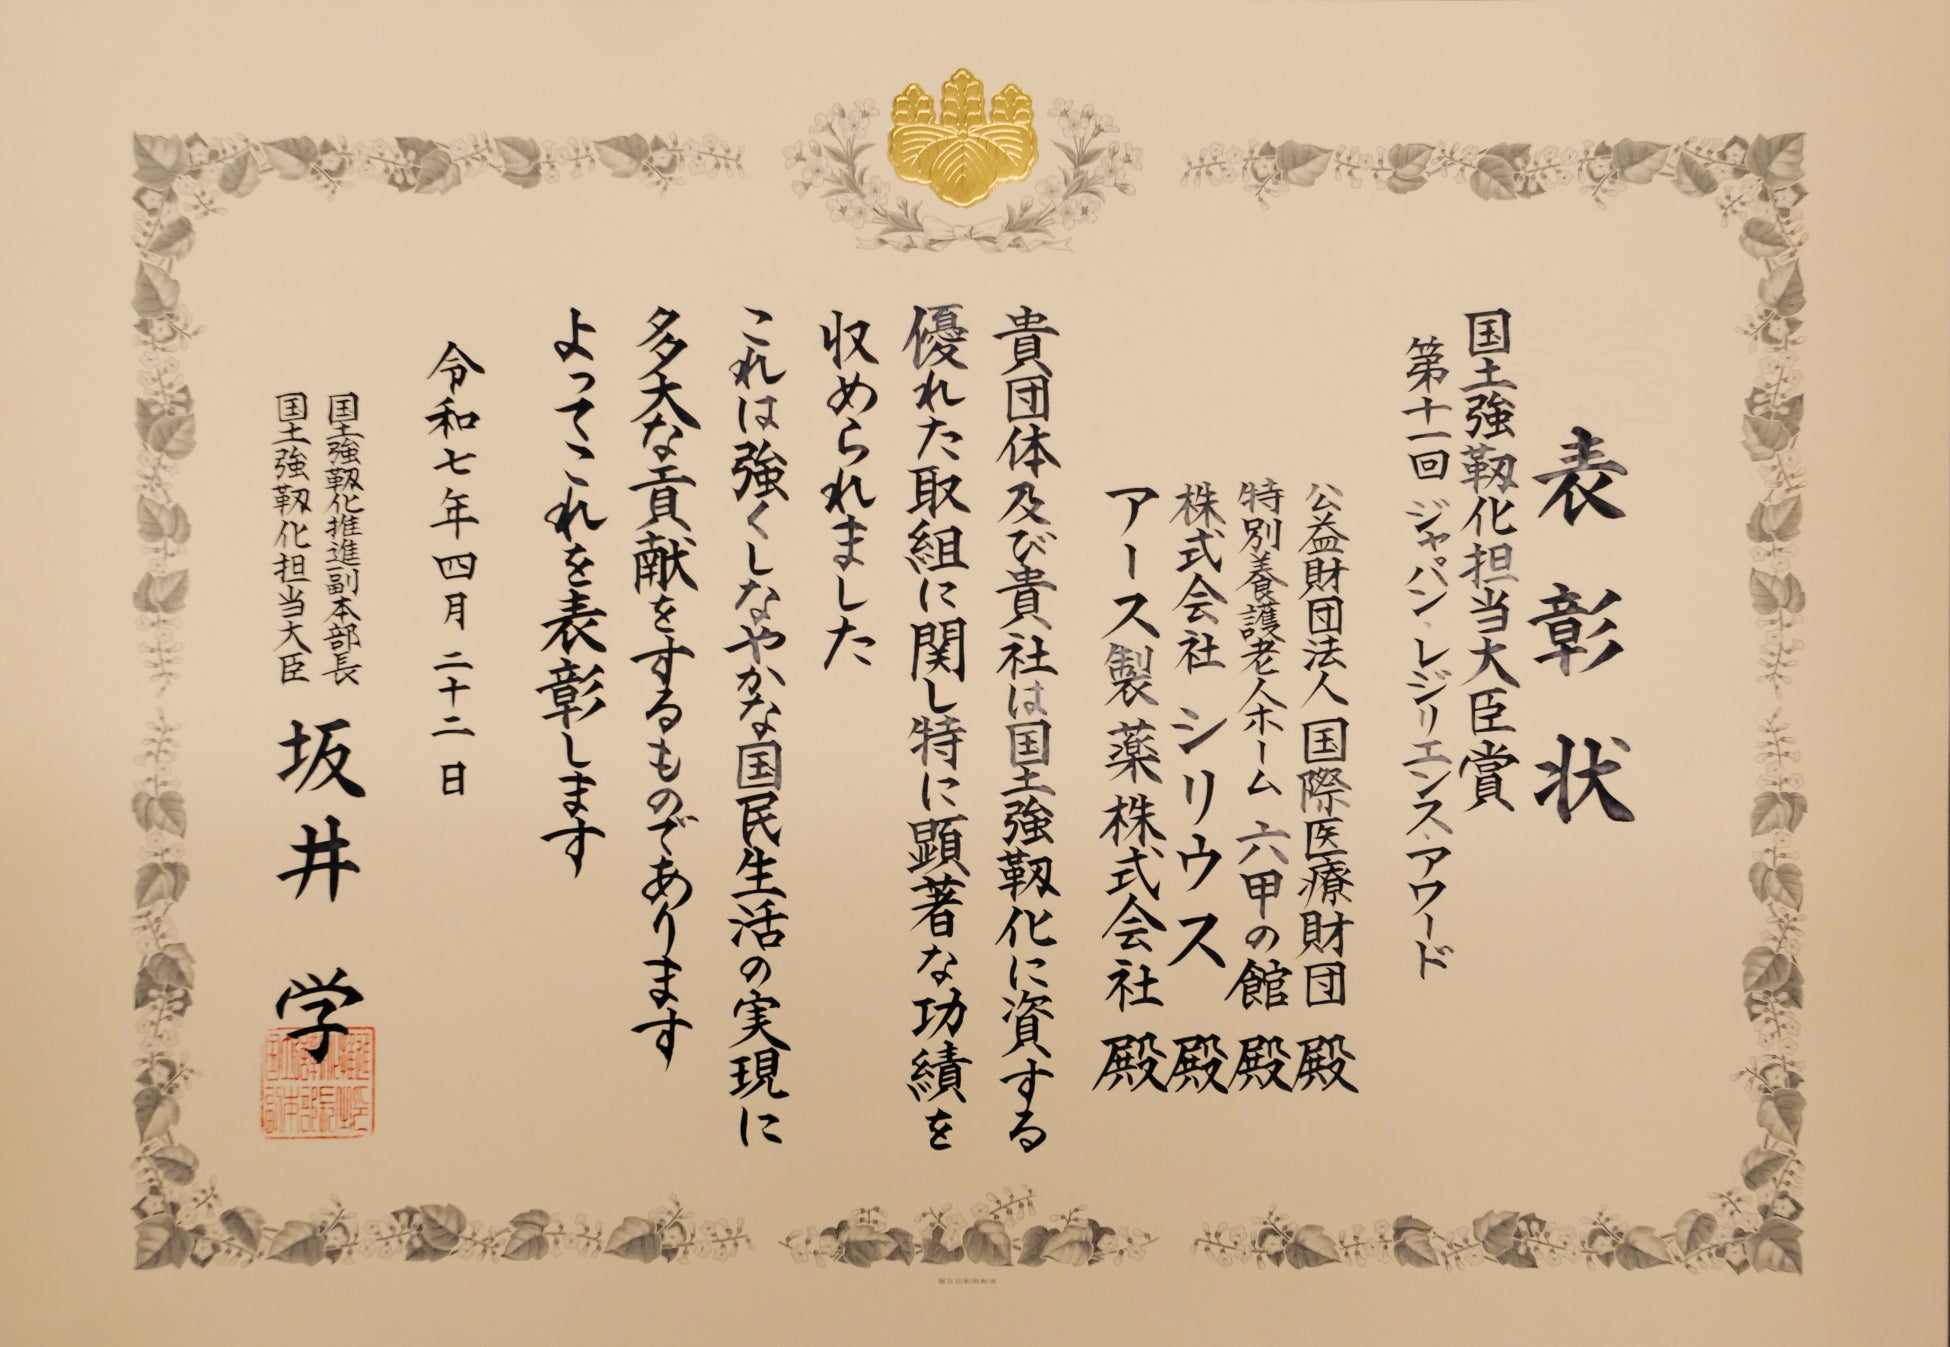 表彰状
国土強靱化担当大臣賞
第十一回 ジャパン・レジリエンス・アワード
公益財団法人 国際医療財団 殿
特別養護老人ホーム 六甲の館 殿
株式会社 シリウス 殿
アース製薬株式会社 殿
貴団体及び貴社は国土強靱化に資する
優れた取組に関し特に顕著な功績を
収められました
これは強くしなやかな国民生活の実現に
多大な貢献をするものであります
よってこれを表彰します
令和七年四月二十二日
国土強靱化推進副本部長
国土強靱化担当大臣
坂井 学